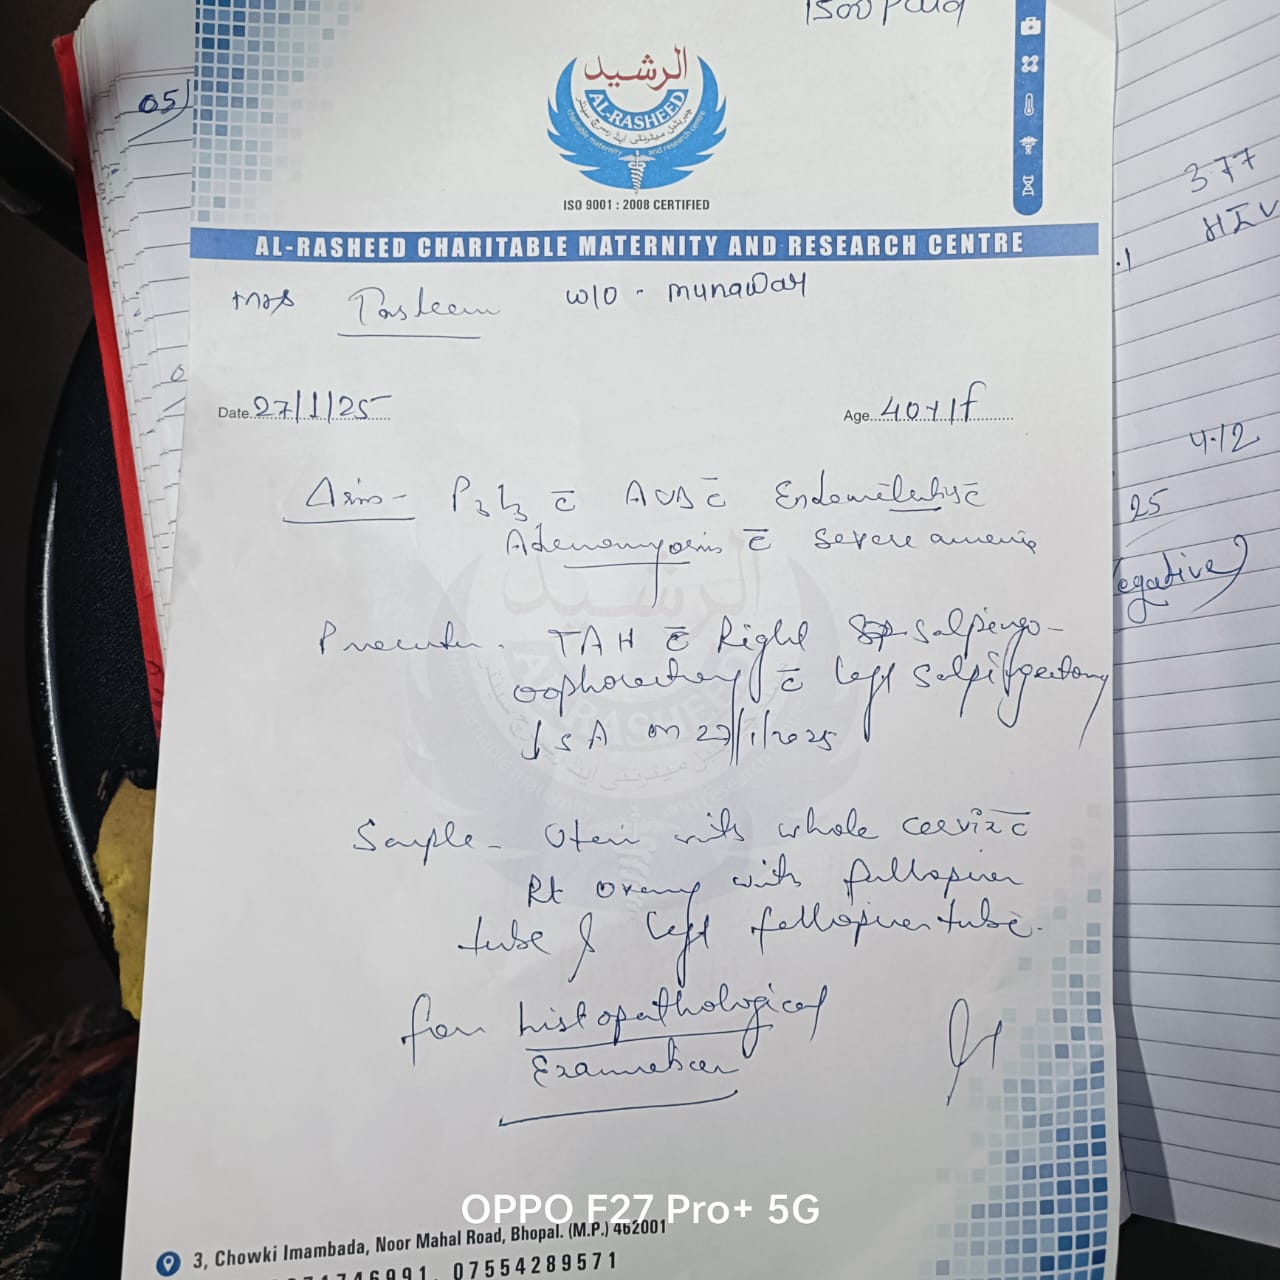 1500 Paid
05
الرشيد
AL-RASHEED
charitable maternity and research centre
ISO 9001 : 2008 CERTIFIED
AL-RASHEED CHARITABLE MATERNITY AND RESEARCH CENTRE
mrs Tasleem w/o - munawar
Date 27/1/25 Age 40y/f
P3L3 c̄ AUB c̄
Adenomyosis c̄ severe
TAH c̄ Right salpingo-
oophorectomy c̄ left salpingectomy
on 27/1/2025
Sample - with whole cervix c̄
Rt ovary with
tube & left tube.
for histopathological
3.77
HIV
4.12
25
egative)
OPPO F27 Pro+ 5G
3, Chowki Imambada, Noor Mahal Road, Bhopal. (M.P.) 462001
07554289571